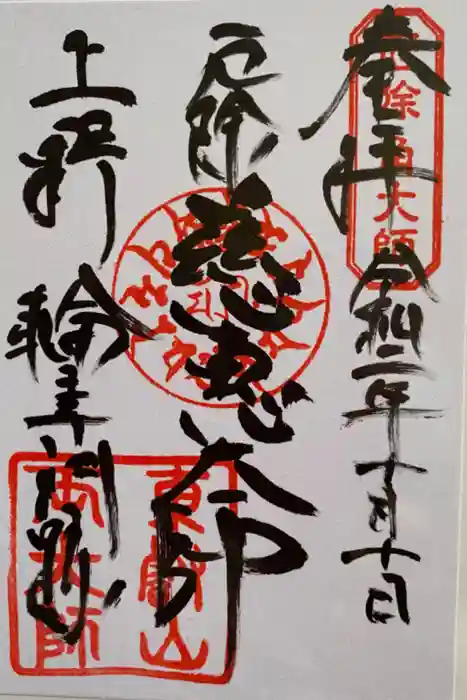 奉拝
令和二年十月十日
厄除
慈恵大師
上野
輪王寺門跡
厄除角大師
東叡山
両大師